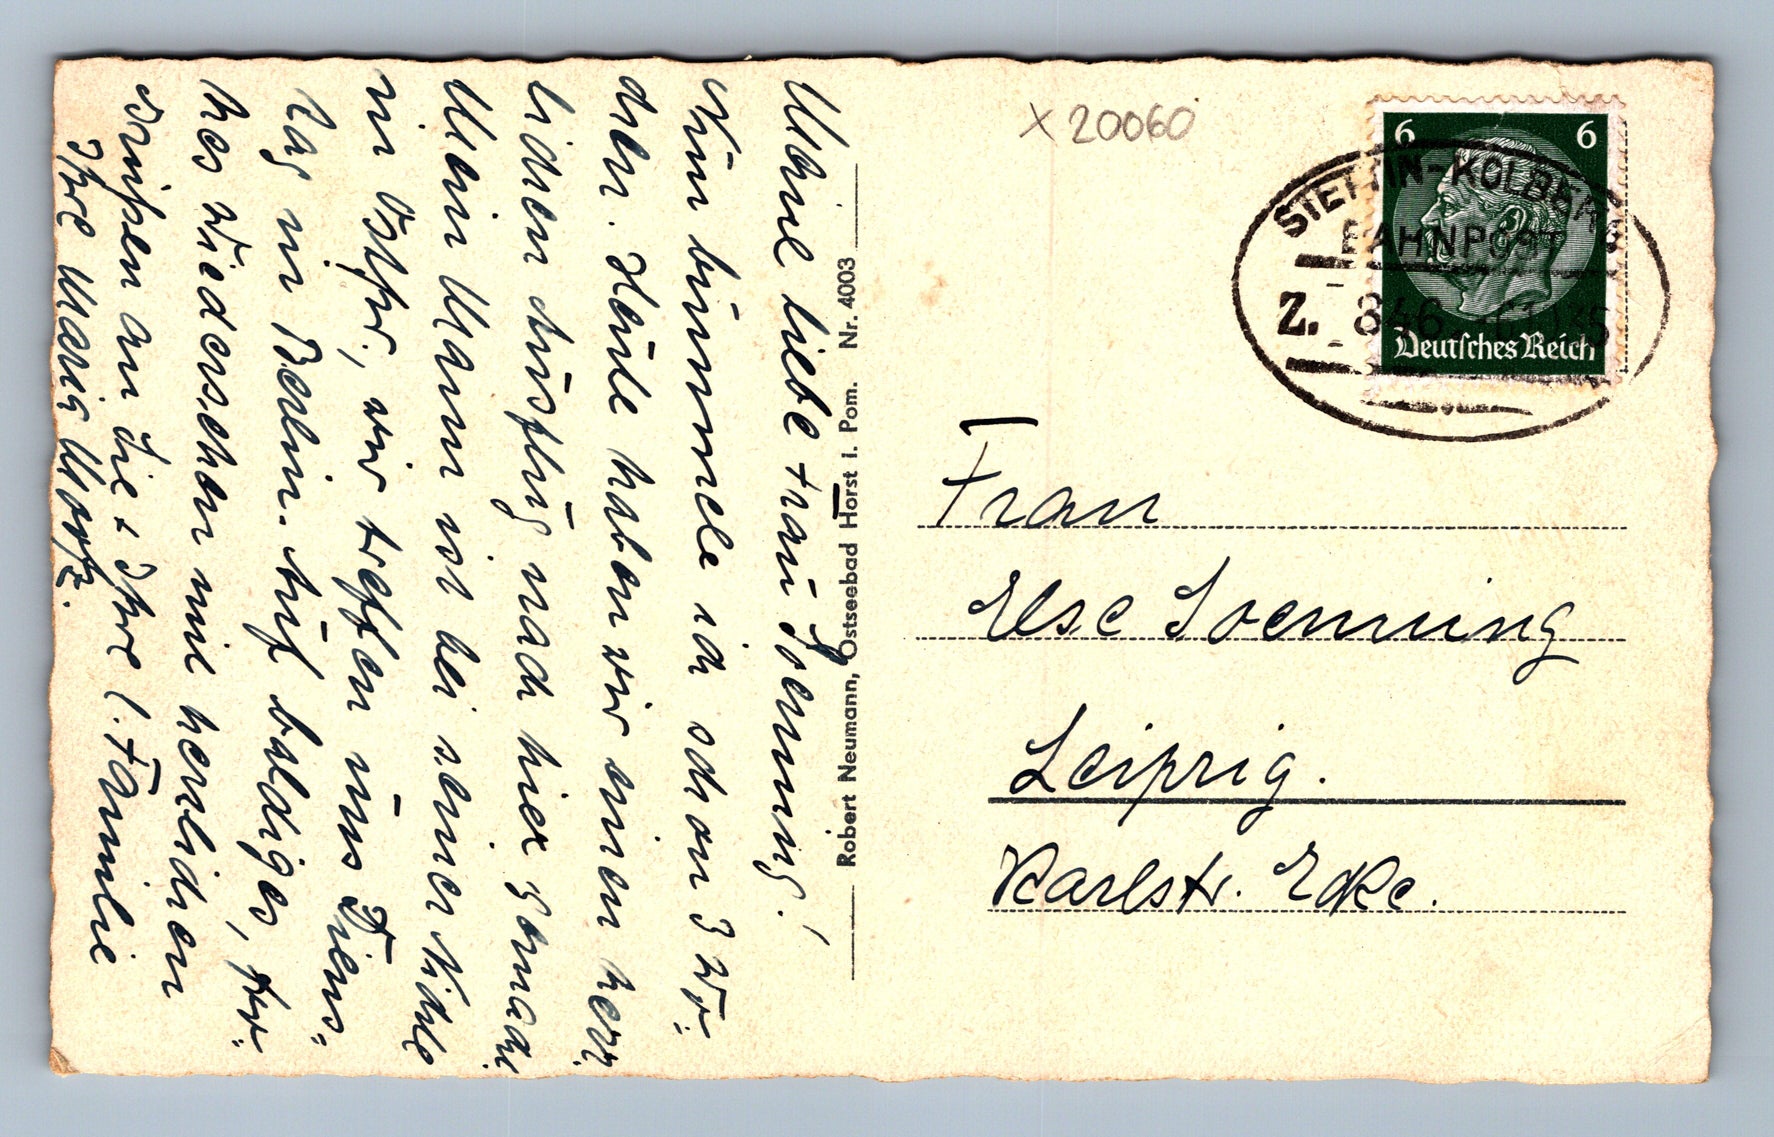 Meine liebe Frau Soenning!
Nun bummele ich schon 3 Wo-
chen. Heute haben wir einen herr-
lichen Ausflug nach hier gemacht.
Mein Mann ist bei seiner Nichte
in Ostpr., wir treffen uns Diens-
tag in Berlin. Auf baldiges, fro-
hes Wiedersehen mit herzlichen
Grüßen an Sie + Ihre l. Familie
Ihre Marie
Robert Neumann, Ostseebad Horst i. Pom. Nr. 4003
x 20060
6 6
Deutsches Reich
STETTIN-KOLBERG
BAHNPOST
Z. 846
Frau
Else Soenning
Leipzig.
Karlstr. Ecke.